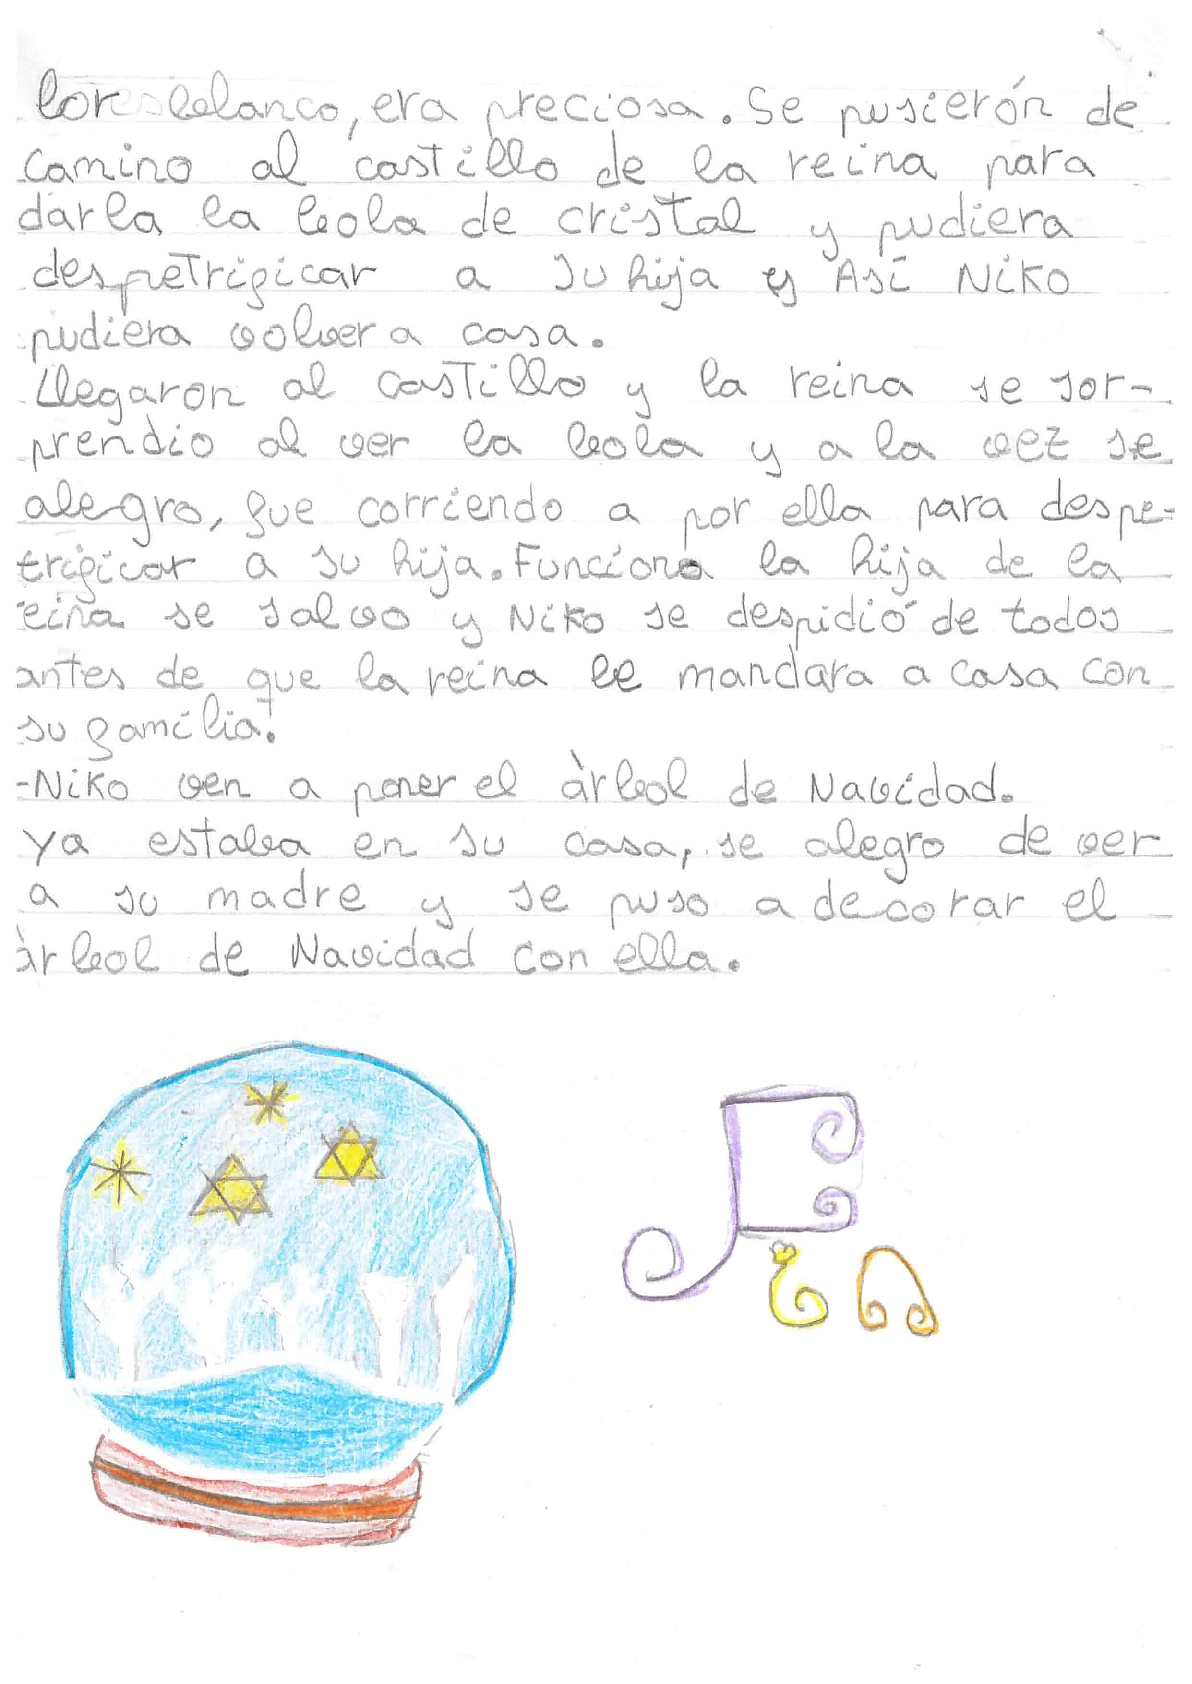 lores blanco, era preciosa. Se pusierón de
camino al castillo de la reina para
darla la bola de cristal y pudiera
despetrificar a su hija y Así Niko
pudiera volver a casa.
Llegaron al castillo y la reina se sor-
prendio al ver la bola y a la vez se
alegro, fue corriendo a por ella para despe-
trificar a su hija. Funciono la hija de la
eina se salvo y Niko se despidió de todos
antes de que la reina le mandara a casa con
su familia.
-Niko ven a poner el àrbol de Navidad.
Ya estaba en su casa, se alegro de ver
a su madre y se puso a decorar el
àrbol de Navidad con ella.
Fin